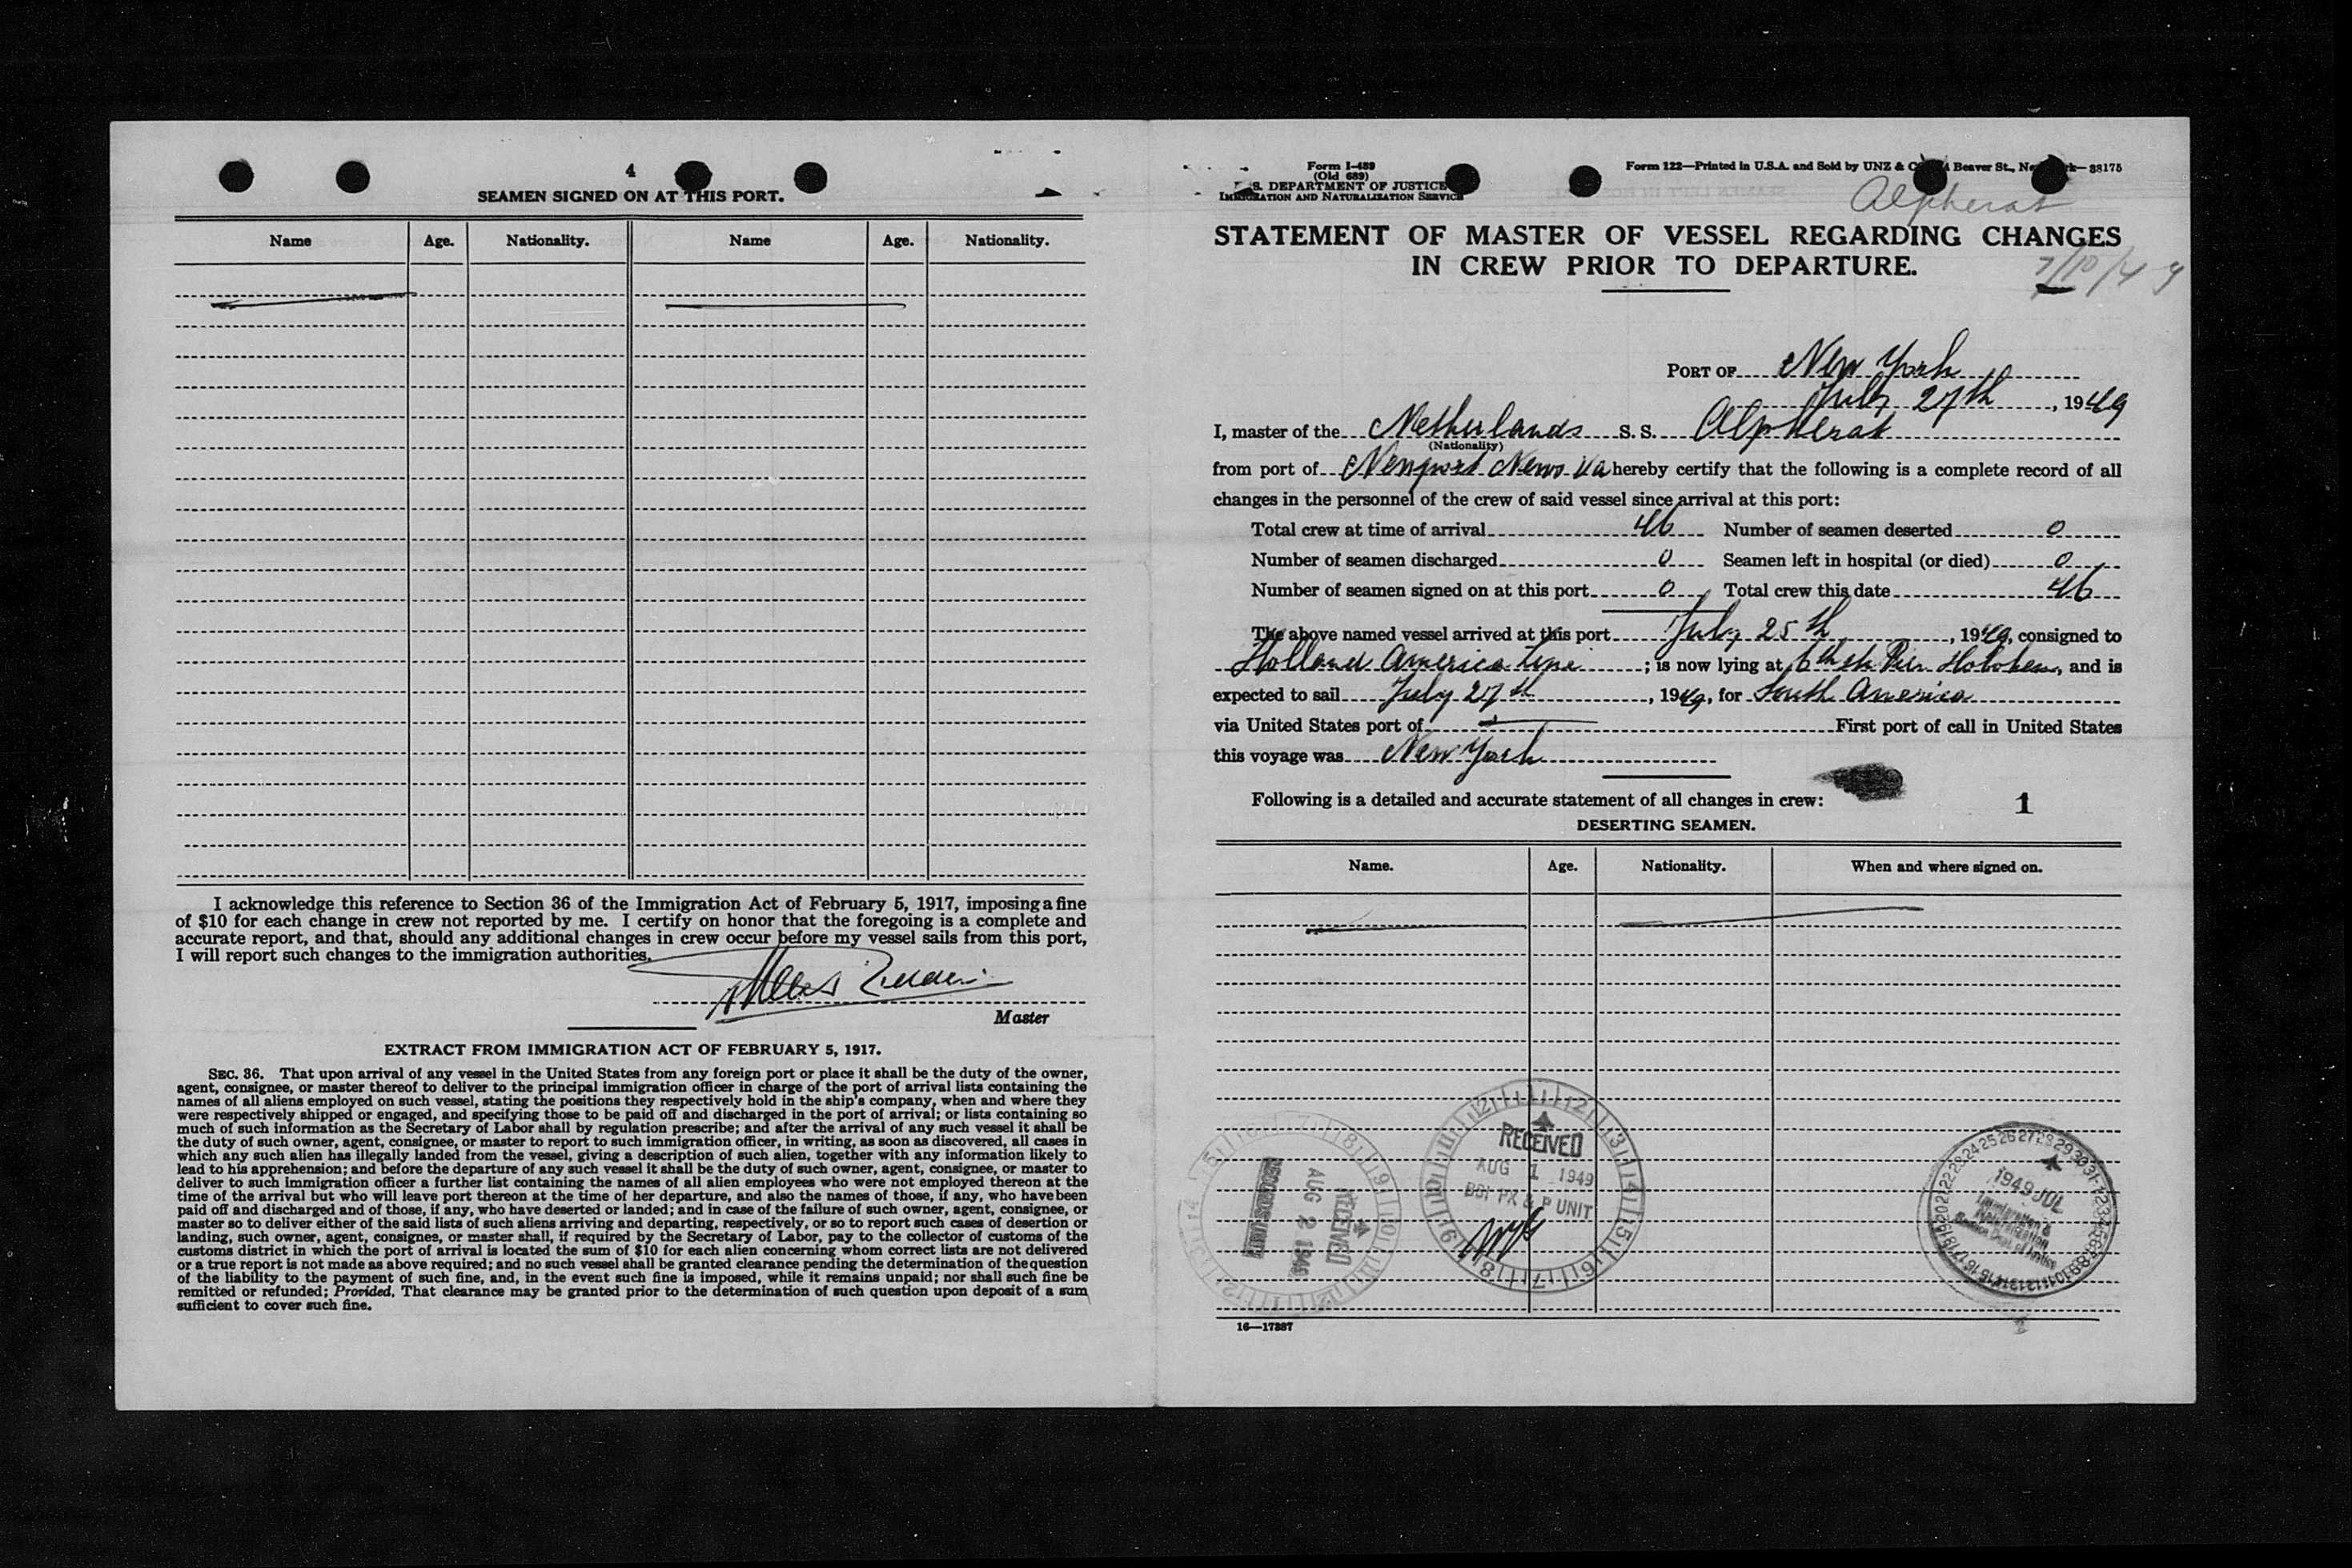 4
SEAMEN SIGNED ON AT THIS PORT.
Name Age. Nationality. Name Age. Nationality.
I acknowledge this reference to Section 36 of the Immigration Act of February 5, 1917, imposing a fine
of $10 for each change in crew not reported by me. I certify on honor that the foregoing is a complete and
accurate report, and that, should any additional changes in crew occur before my vessel sails from this port,
I will report such changes to the immigration authorities.
Master
EXTRACT FROM IMMIGRATION ACT OF FEBRUARY 5, 1917.
SEC. 36. That upon arrival of any vessel in the United States from any foreign port or place it shall be the duty of the owner,
agent, consignee, or master thereof to deliver to the principal immigration officer in charge of the port of arrival lists containing the
names of all aliens employed on such vessel, stating the positions they respectively hold in the ship's company, when and where they
were respectively shipped or engaged, and specifying those to be paid off and discharged in the port of arrival; or lists containing so
much of such information as the Secretary of Labor shall by regulation prescribe; and after the arrival of any such vessel it shall be
the duty of such owner, agent, consignee, or master to report to such immigration officer, in writing, as soon as discovered, all cases in
which any such alien has illegally landed from the vessel, giving a description of such alien, together with any information likely to
lead to his apprehension; and before the departure of any such vessel it shall be the duty of such owner, agent, consignee, or master to
deliver to such immigration officer a further list containing the names of all alien employees who were not employed thereon at the
time of the arrival but who will leave port thereon at the time of her departure, and also the names of those, if any, who have been
paid off and discharged and of those, if any, who have deserted or landed; and in case of the failure of such owner, agent, consignee, or
master so to deliver either of the said lists of such aliens arriving and departing, respectively, or so to report such cases of desertion or
landing, such owner, agent, consignee, or master shall, if required by the Secretary of Labor, pay to the collector of customs of the
customs district in which the port of arrival is located the sum of $10 for each alien concerning whom correct lists are not delivered
or a true report is not made as above required; and no such vessel shall be granted clearance pending the determination of the question
of the liability to the payment of such fine, and, in the event such fine is imposed, while it remains unpaid; nor shall such fine be
remitted or refunded; Provided, That clearance may be granted prior to the determination of such question upon deposit of a sum
sufficient to cover such fine.
Form I-489
(Old 689)
S. DEPARTMENT OF JUSTICE
IMMIGRATION AND NATURALIZATION SERVICE
Form 122—Printed in U.S.A. and Sold by UNZ & Beaver St., 38175
Alpherat
STATEMENT OF MASTER OF VESSEL REGARDING CHANGES
IN CREW PRIOR TO DEPARTURE.
7/10/49
PORT OF New York
July 27th, 1949
I, master of the Netherlands S. S. Alpherat
(Nationality)
from port of Newport News Va hereby certify that the following is a complete record of all
changes in the personnel of the crew of said vessel since arrival at this port:
Total crew at time of arrival 46 Number of seamen deserted 0
Number of seamen discharged 0 Seamen left in hospital (or died) 0
Number of seamen signed on at this port 0 Total crew this date 46
The above named vessel arrived at this port July 25th, 1949, consigned to
Holland America Line; is now lying at 6th st. Pier Hoboken, and is
expected to sail July 27th, 1949, for South America
via United States port of First port of call in United States
this voyage was New York
Following is a detailed and accurate statement of all changes in crew:
1
DESERTING SEAMEN.
Name. Age. Nationality. When and where signed on.
RECEIVED
AUG 2 1949
RECORDS UNIT
RECEIVED
AUG 1 1949
P UNIT
1949 JUL
Immigration &
Naturalization
Service Dept. of Justice
16—17887